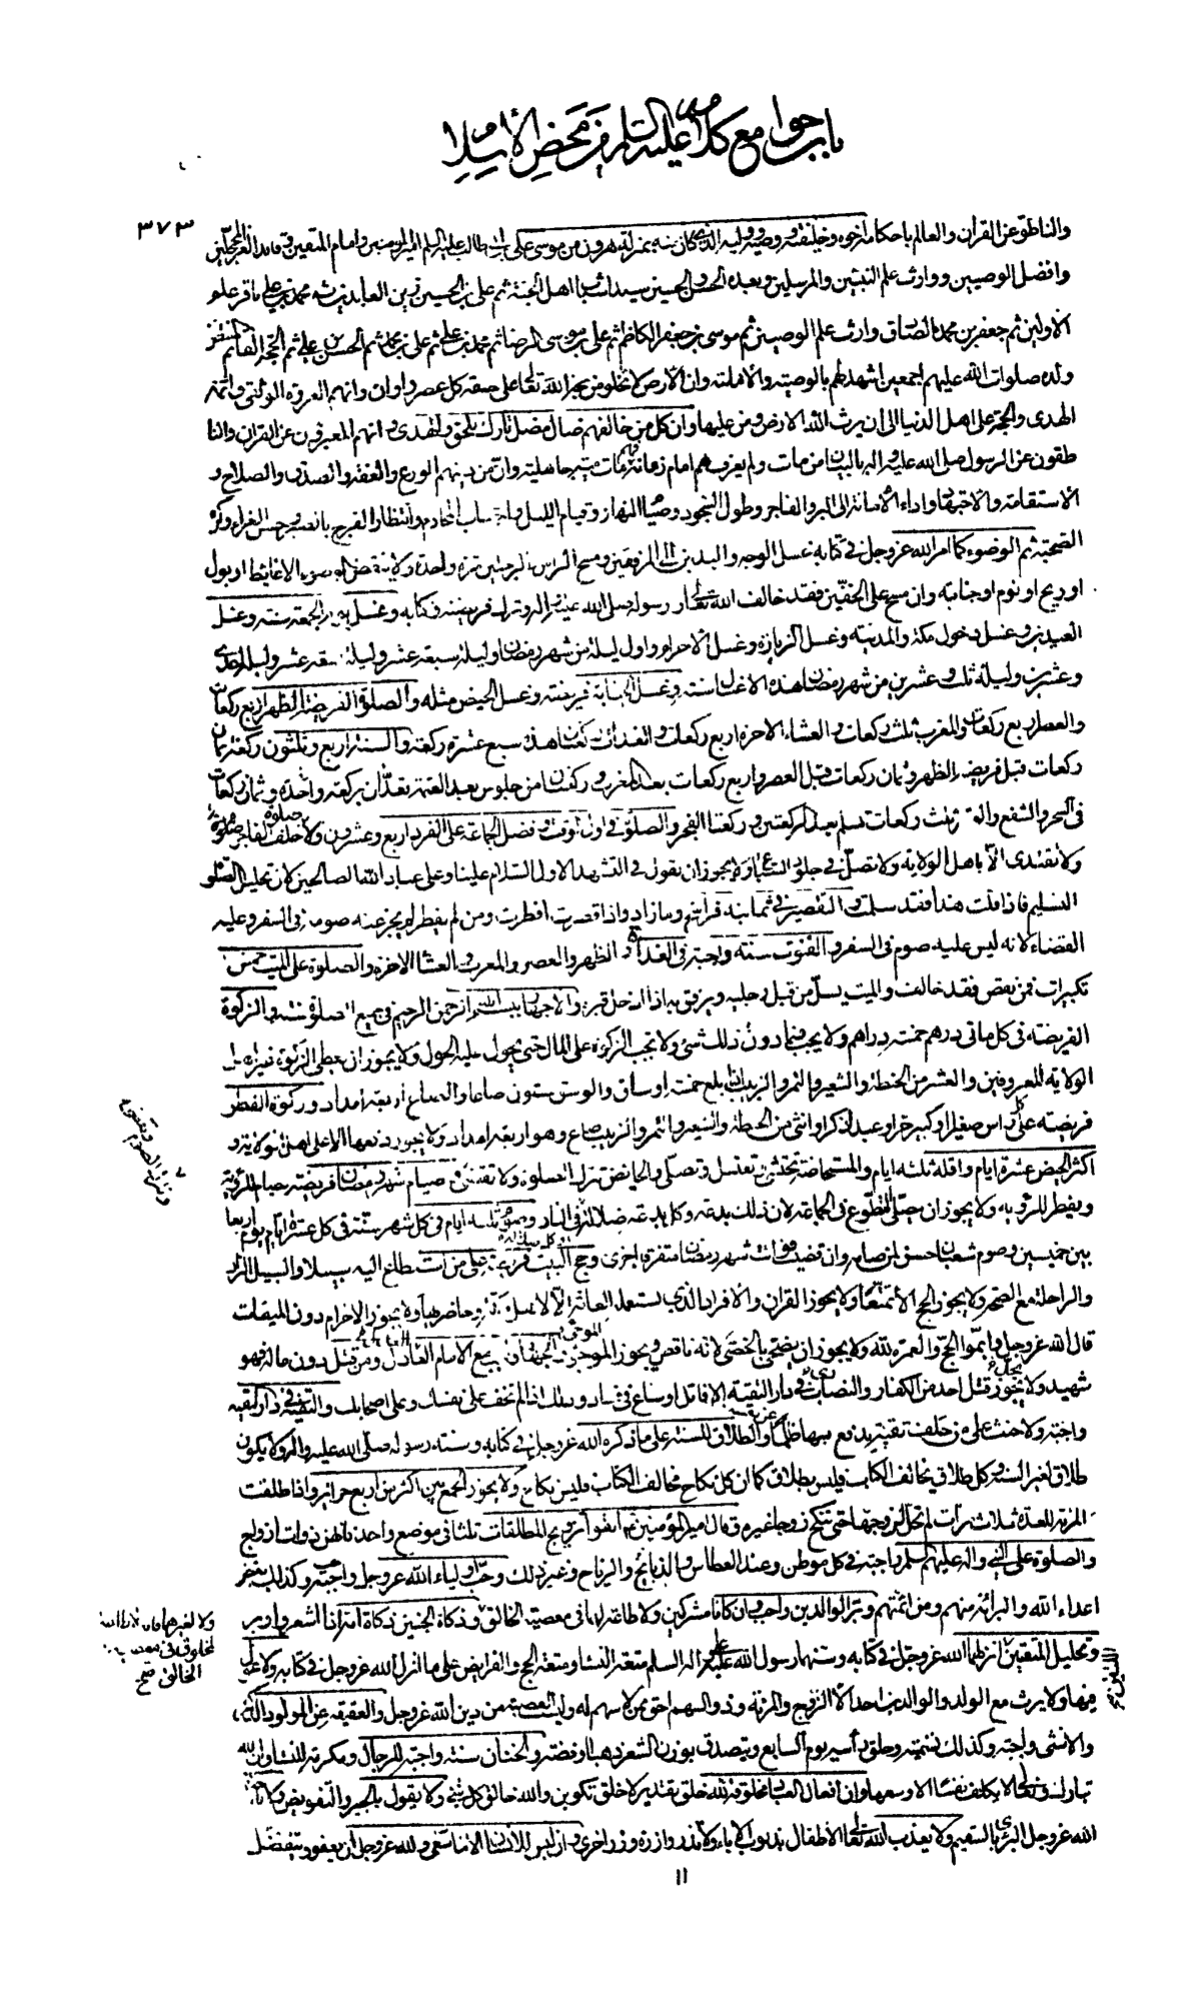 باب جوامع كلامه عليه السلام في محض الاسلام
٣٧٣
والناطق عن القران والعالم باحكامه اخوه وخليفته ووصيه ووليه الذي كان منه بمنزلة هرون من موسى علي بن ابي طالب عليه السلم امير المؤمنين وامام المتقين وقائد الغر المحجلين
وافضل الوصيين ووارث علم النبيين والمرسلين وبعده الحسن والحسين سيدا شباب اهل الجنة ثم علي بن الحسين زين العابدين ثم محمد بن علي باقر علم
الاولين ثم جعفر بن محمد الصادق وارث علم الوصيين ثم موسى بن جعفر الكاظم ثم علي بن موسى الرضا ثم محمد بن علي ثم علي بن محمد ثم الحسن بن علي ثم الحجة القائم المنتظر
ولده صلوات الله عليهم اجمعين اشهد لهم بالوصية والامامة وان الارض لا تخلو من حجة الله تعالى على خلقه كل عصر واوان وانهم العروة الوثقى وائمة
الهدى والحجة على اهل الدنيا الى ان يرث الله الارض ومن عليها وان كل من خالفهم ضال مضل تارك للحق والهدى وانهم المعبرون عن القران والنا
طقون عن الرسول صلى الله عليه واله بالبيان من مات ولم يعرفهم امام زمانه مات ميتة جاهلية وان من دينهم الورع والعفة والصدق والصلاح و
الاستقامة والاجتهاد واداء الامانة الى البر والفاجر وطول السجود وصيام النهار وقيام الليل واجتناب المحارم وانتظار الفرج بالصبر وحسن العزاء وكرم
الصحبة ثم الوضوء كما امر الله عز وجل في كتابه غسل الوجه واليدين الى المرفقين ومسح الراس والرجلين مرة واحدة ولا ينقض الوضوء الا غائط او بول
او ريح او نوم او جنابة وان مسح على الخفين فقد خالف الله تعالى ورسوله صلى الله عليه واله وترك فريضة وكتابه وغسل يوم الجمعة سنة وغسل
العيدين وغسل دخول مكة والمدينة وغسل الزيارة وغسل الاحرام واول ليلة من شهر رمضان وليلة سبعة عشر وليلة تسعة عشر وليلة احدى
وعشرين وليلة ثلث وعشرين من شهر رمضان هذه الاغسال سنة وغسل الجنابة فريضة وغسل الحيض مثله والصلوة الفريضة الظهر اربع ركعات
والعصر اربع ركعات والمغرب ثلث ركعات والعشاء الاخرة اربع ركعات والغداة ركعتان هذه سبع عشرة ركعة والسنة اربع وثلثون ركعة ثمان
ركعات قبل فريضة الظهر وثمان ركعات قبل العصر واربع ركعات بعد المغرب وركعتان من جلوس بعد العتمة تعدان بركعة واحدة وثمان ركعات
في السحر والشفع والوتر ثلث ركعات تسلم بعد الركعتين وركعتا الفجر والصلوة في اول الوقت وفضل الجماعة على الفرد اربع وعشرون ولا صلوة خلف الفاجر
ولا تقتدى الا باهل الولاية ولا تصل في جلود السباع ولا يجوز ان تقول في التشهد الاول السلام علينا وعلى عباد الله الصالحين لان تحليل الصلوة
التسليم فاذا قلت هذا فقد سلمت والتقصير في ثمانية فراسخ وما زاد واذا قصرت افطرت ومن لم يفطر لم يجز عنه صومه في السفر وعليه
القضاء لانه ليس عليه صوم في السفر والقنوت سنة واجبة في الغداة والظهر والعصر والمغرب والعشا الاخرة والصلوة على الميت خمس
تكبيرات فمن نقص فقد خالف والميت يسل من قبل رجليه ويرفق به اذا ادخل قبره والاجهار ببسم الله الرحمن الرحيم في جميع الصلوة سنة والزكوة
الفريضة في كل مائتي درهم خمسة دراهم ولا يجب فيما دون ذلك شئ ولا تجب الزكوة على المال حتى يحول عليه الحول ولا يجوز ان يعطى الزكوة غير اهل
الولاية المعروفين والعشر من الحنطة والشعير والتمر والزبيب اذا بلغ خمسة اوساق والوسق ستون صاعا والصاع اربعة امداد وزكوة الفطر
فريضة على كل راس صغير او كبير حر او عبد ذكر او انثى من الحنطة والشعير والتمر والزبيب صاع وهو اربعة امداد ولا يجوز دفعها الا على اهل الولاية و
اكثر الحيض عشرة ايام واقله ثلثه ايام والمستحاضة تحتشي وتغتسل وتصلي والحائض تترك الصلوة ولا تقضي وصيام شهر رمضان فريضة يصام للرؤية
وتترك الصوم وتقضيه
ويفطر للرؤية ولا يجوز ان يصلى التطوع في الجماعة لان ذلك بدعة وكل بدعة ضلالة وكل ضلالة في النار وصوم ثلثة ايام في كل شهر سنة في كل عشرة ايام يوم اربعا
بين خميسين وصوم شعبان حسن لمن صامه وان قضيت فوائت شهر رمضان متفرقة اجزى وحج البيت فريضة على من استطاع اليه سبيلا والسبيل الزاد
والراحلة مع الصحة ولا يجوز الحج الا تمتعا ولا يجوز القران والافراد الذي يستعمله العامة الا لاهل مكة وحاضريها ولا يجوز الاحرام دون الميقات
قال الله عز وجل واتموا الحج والعمرة لله ولا يجوز ان يضحى بالخصى لانه ناقص ويجوز الموجوء والجهاد واجب مع الامام العادل ومن قتل دون ماله فهو
شهيد ولا يجوز قتل احد من الكفار والنصاب في دار التقية الا قاتل او ساع في فساد وذلك اذا لم تخف على نفسك وعلى اصحابك والتقية في دار التقية
واجبة ولا حنث على من حلف تقية يدفع بها ظلما عن نفسه والطلاق للسنة على ما ذكره الله عز وجل في كتابه وسنة رسوله صلى الله عليه واله ولا يكون
طلاق لغير السنة وكل طلاق يخالف الكتاب فليس بطلاق كما ان كل نكاح يخالف الكتاب فليس بنكاح ولا يجوز الجمع بين اكثر من اربع حرائر واذا طلقت
المرأة للعدة ثلاث مرات لم تحل لزوجها حتى تنكح زوجا غيره وقال امير المؤمنين ع اتقوا تزويج المطلقات ثلثا في موضع واحد فانهن ذوات ازواج
والصلوة على النبي واله عليهم السلم واجبة في كل موطن وعند العطاس والذبائح والرياح وغير ذلك وحب اولياء الله عز وجل واجب وكذلك بغض
اعداء الله والبرائة منهم ومن ائمتهم وبر الوالدين واجب وان كانا مشركين ولا طاعة لهما في معصية الخالق وذكاة الجنين ذكاة امه اذا اشعر واوبر
ولا لغيرهما فانه لا طاعة لمخلوق في معصية الخالق صح
وتحليل المتعتين الذين انزلهما الله عز وجل في كتابه وسنهما رسول الله عليه واله السلم متعة النساء ومتعة الحج والفرايض على ما انزل الله عز وجل في كتابه ولا عول
فيها ولا يرث مع الولد والوالدين احد الا الزوج والمرأة وذو السهم احق ممن لا سهم له وليست العصبة من دين الله عز وجل والعقيقة عن المولود الذكر
والانثى واجبة وكذلك تسميته وحلق رأسه يوم السابع ويتصدق بوزن الشعر ذهبا او فضة والختان سنة واجبة للرجال ومكرمة للنساء وان الله
تبارك وتعالى لا يكلف نفسا الا وسعها وان افعال العباد مخلوقة لله خلق تقدير لا خلق تكوين والله خالق كل شئ ولا يقول بالجبر والتفويض ولا ياخذ
الله عز وجل البرئ بالسقيم ولا يعذب الله تعالى الاطفال بذنوب الاباء ولا تزر وازرة وزر اخرى وان ليس للانسان الا ما سعى ولله عز وجل ان يعفو ويتفضل
١١